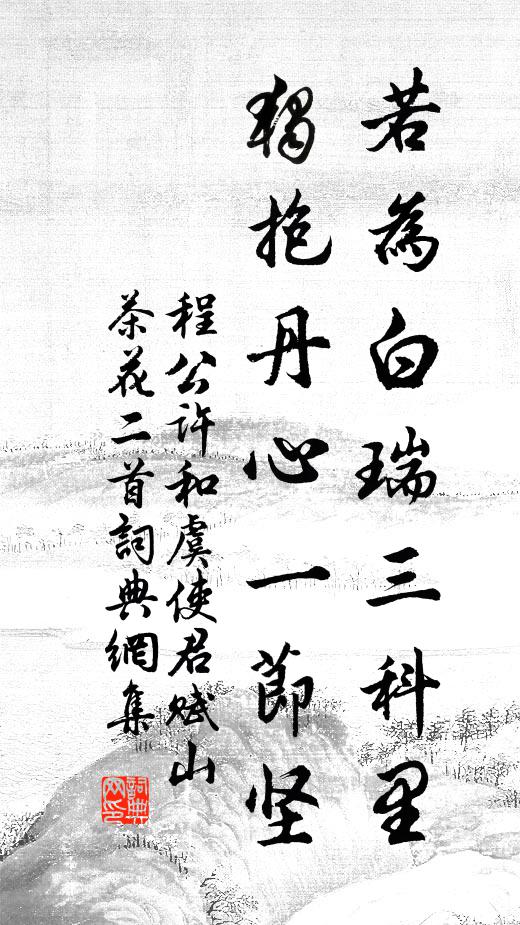 若為白瑞三科里
獨抱丹心一節坚
程公許和虞使君赋山
茶花二首詞典網集
詞典
网印